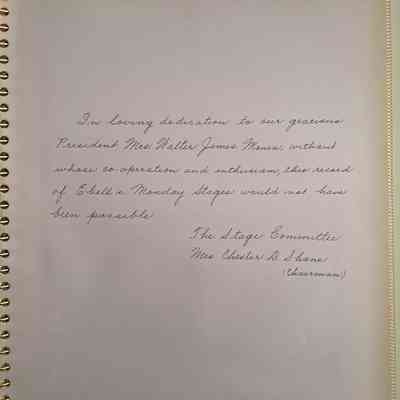 In loving dedication to our gracious
President Mrs Walter James without
whose co-operation and enthusiasm, this record
of Ebell's Monday Stages would not have
been possible
The Stage Committee
Mrs Chester D. Shane
(Chairman)